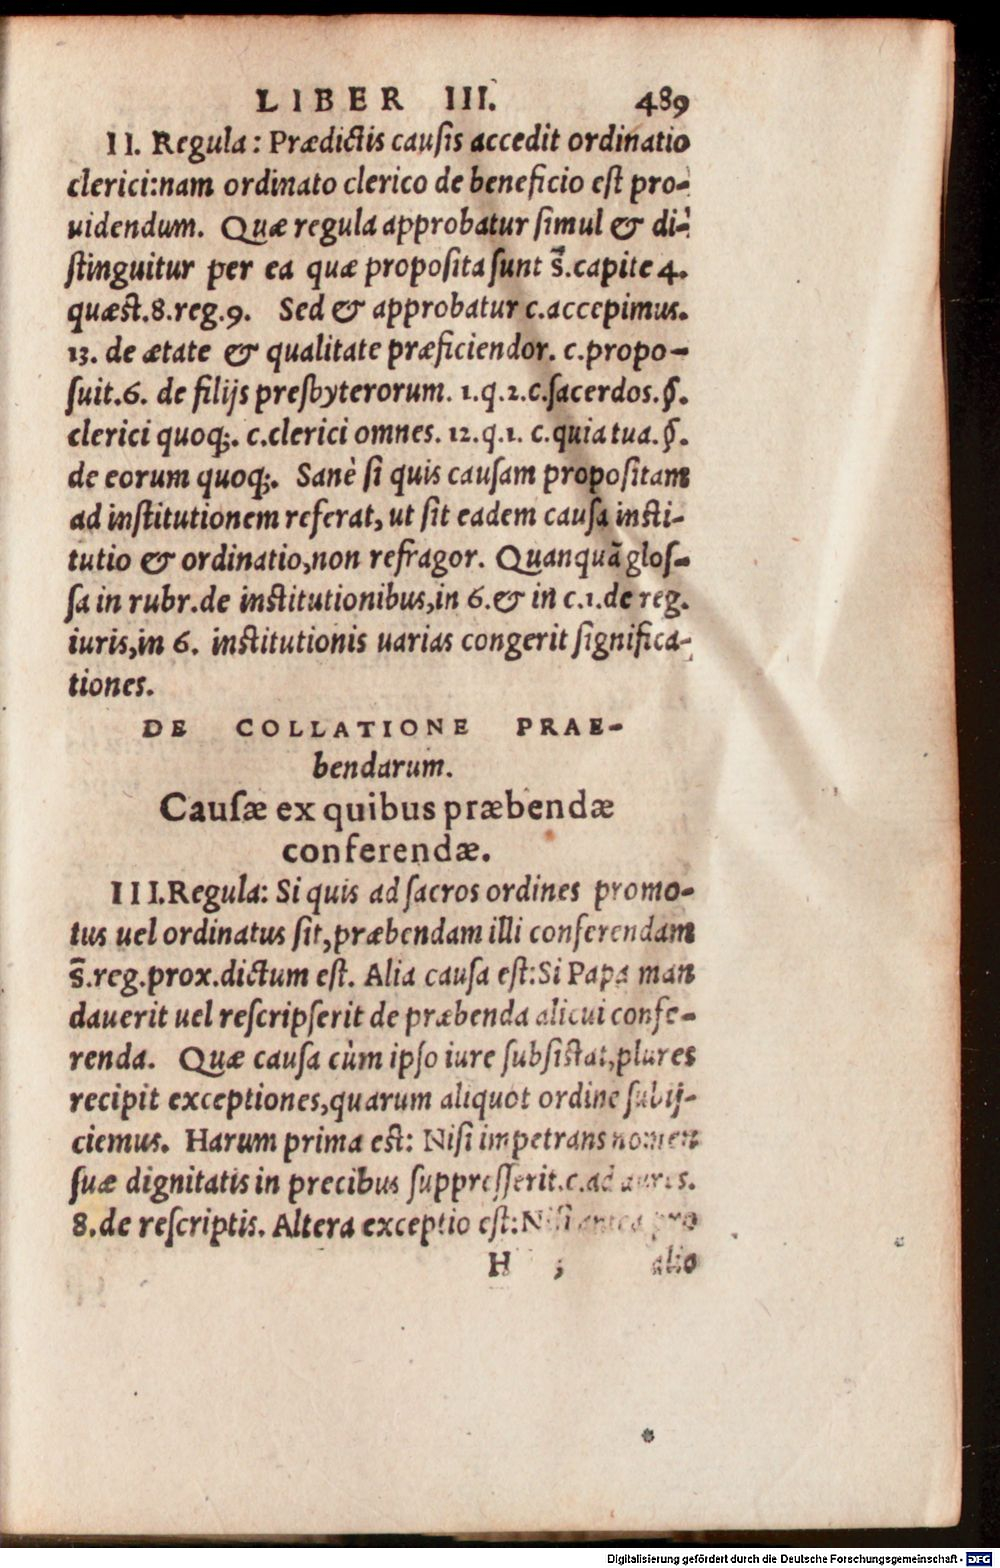 LIBER III. 489
II. Regula: Prædictis causis accedit ordinatio
clerici:nam ordinato clerico de beneficio est pro-
uidendum. Quæ regula approbatur simul & di-
stinguitur per ea quæ proposita sunt s̄.capite 4.
quæst.8.reg.9. Sed & approbatur c.accepimus.
13. de ætate & qualitate præficiendor. c.propo-
suit.6. de filijs presbyterorum. 1.q.2.c.sacerdos.§.
clerici quoq;. c.clerici omnes. 12.q.1. c.quia tua.§.
de eorum quoq;. Sanè si quis causam propositam
ad institutionem referat, ut sit eadem causa insti-
tutio & ordinatio,non refragor. Quanquā glos-
sa in rubr.de institutionibus,in 6.& in c.1.de reg.
iuris,in 6. institutionis uarias congerit significa-
tiones.
DE COLLATIONE PRAE-
bendarum.
Causæ ex quibus præbendæ
conferendæ.
III.Regula: Si quis ad sacros ordines promo-
tus uel ordinatus sit,præbendam illi conferendam
s̄.reg.prox.dictum est. Alia causa est:Si Papa man
dauerit uel rescripserit de præbenda alicui confe-
renda. Quæ causa cùm ipso iure subsistat,plures
recipit exceptiones,quarum aliquot ordine subij-
ciemus. Harum prima est: Nisi impetrans nomen
suæ dignitatis in precibus suppresserit.c.ad aures.
8.de rescriptis. Altera exceptio est:Nisi antea pro
H alio
Digitalisierung gefördert durch die Deutsche Forschungsgemeinschaft - DFG